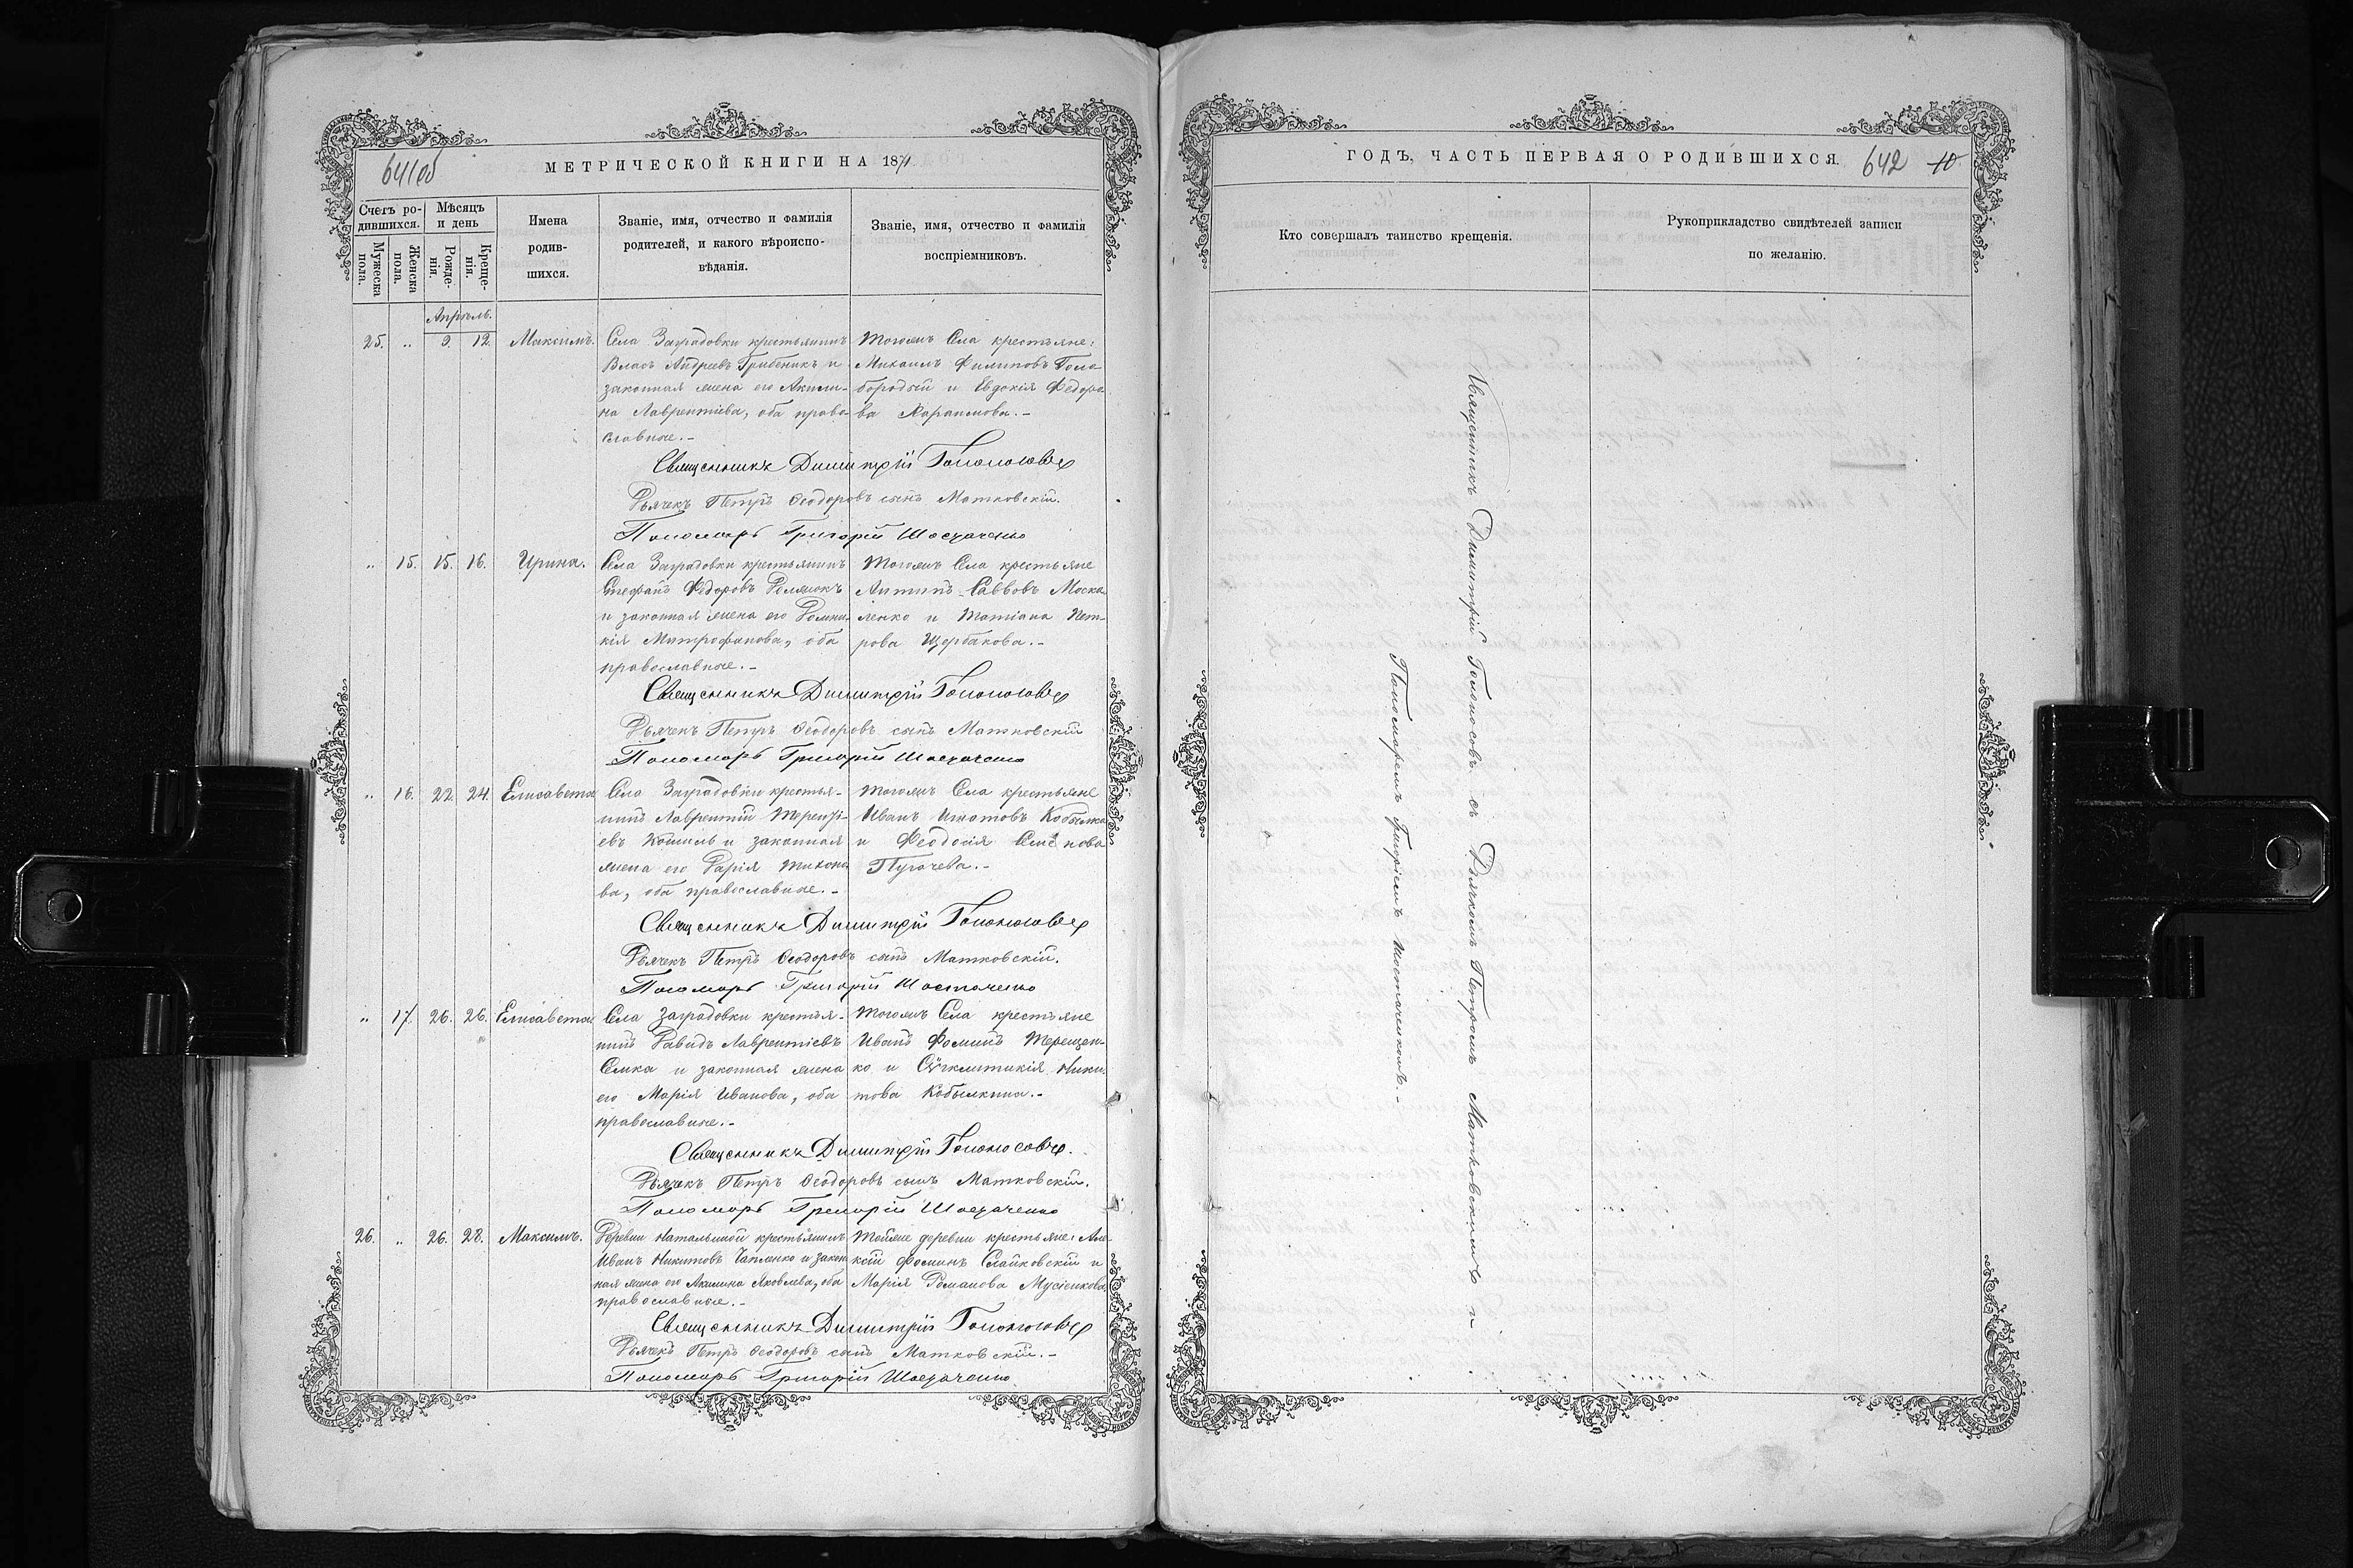 641об
МЕТРИЧЕСКОЙ КНИГИ НА 1871
Счетъ ро-
дившихся.
Мужеска
пола.
Женска
пола.
Мѣсяцъ
и день
Рожде-
нія.
Креще-
нія.
Имена
родив-
шихся.
Званіе, имя, отчество и фамилія
родителей, и какого вѣроиспо-
вѣданія.
Званіе, имя, отчество и фамилія
воспріемниковъ.
Апрѣль.
25. " 9. 12. Максимъ.
Села Заградовки крестьянинъ
Власъ Андреевъ Грибеникъ и
законная жена его Акили-
на Лаврентіева, оба право-
славные.-
Тогожъ Села крестьяне:
Михаилъ Филиповъ Голо
бородый и Евдокія Федоро
ва Харланова.-
Священникъ Димитрій Голоносовъ
Дьячекъ Петръ Ѳеодоровъ сынъ Матковскій.
Пономарь Григорій Шостаченко
" 15. 15. 16. Ирина.
Села Заградовки крестьянинъ
Стефанъ Федоровъ
и законная жена его Домни-
кія Митрофанова, оба
православные.-
Тогожъ Села крестьяне
Антипъ Саввовъ Моска
ленко и Татіана Пет-
рова Щербакова.-
Священникъ Димитрій Голоносовъ
Дьячекъ Петръ Ѳеодоровъ сынъ Матковскій
Пономарь Григорій Шостаченко
" 16. 22. 24. Елисавета
Села Заградовки крестья-
нинъ Лаврентій Теренті-
евъ Кошиль и законная
жена его Дарія Тихоно
ва, оба православные.-
Тогожъ Села крестьяне
Иванъ Игнатовъ Кобылка
и Феодосія Семенова
Пугачева.-
Священникъ Димитрій Голоносовъ
Дьячекъ Петръ Ѳеодоровъ сынъ Матковскій.
Пономарь Григорій Шостаченко
" 17. 26. 26. Елисавета
Села Заградовки крестья-
нинъ Давидъ Лаврентіевъ
Семка и законная жена
его Марія Иванова, оба
православные.-
Тогожъ Села крестьяне
Иванъ Фоминъ Терещен-
ко и Сѵнклитикія Ники-
това Кобылкина.-
Священникъ Димитрій Голоносовъ.
Дьячекъ Петръ Ѳеодоровъ сынъ Матковскій.
Пономарь Григорій Шостаченко
26. " 26. 28. Максимъ.
Деревни Натальиной крестьянинъ
Иванъ Никитовъ Чапленко и закон
ная жена его Акилина Яковлева, оба
православные.-
Тойже деревни крестьяне: Але
ксій Фоминъ Слайковскій и
Марія Романова Мусіенкова
Священникъ Димитрій Голоносовъ
Дьячекъ Петръ Ѳеодоровъ сынъ Матковскій.-
Пономарь Григорій Шостаченко
ГОДЪ, ЧАСТЬ ПЕРВАЯ О РОДИВШИХСЯ.
642 10
Кто совершалъ таинство крещенія.
Рукоприкладство свидѣтелей записи
по желанію.
Священникъ Димитрій Голоносовъ съ Дьячкомъ Петромъ Матковскимъ и
Пономаремъ Григоріемъ Шостаченкомъ.-